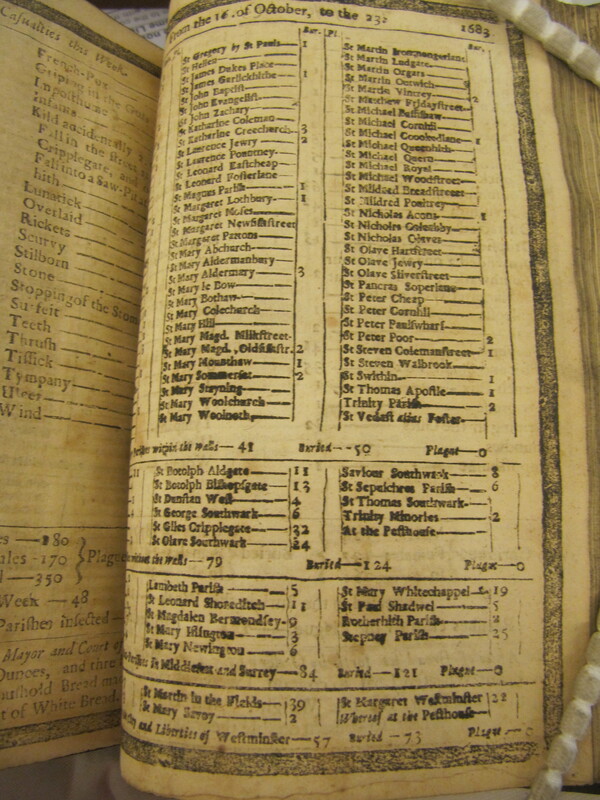 Casualties this Week.
French-Pox
Griping in the
Imposthume
Infants
Kild accidentally
Fall in the
Cripplegate, and
Fall into a Saw-Pit
hith
Lunatick
Overlaid
Rickets
Scurvy
Stilborn
Stone
Stopping of the Stom
Surfeit
Teeth
Thrush
Tissick
Tympany
Ulcer
Wind
180
ales -170 } Plague
350
Week — 48
Parishes infected
Mayor and Court of
Ounces, and three
oushold Bread
t of White Bread
From the 16. of October, to the 23. 1683
Bur. Pl.
St Gregory by St Pauls — 1
St Hellen
St James Dukes Place
St James Garlickhithe — 1
St John Baptist
St John Evangelist
St John Zachary
St Katharine Coleman
St Katharine Creechurch — 3
St Lawrence Jewry — 2
St Lawrence Pountney
St Leonard Eastcheap
St Leonard Fosterlane
St Magnus Parish — 1
St Margaret Lothbury — 1
St Margaret Moses
St Margaret Newfishstreet
St Margaret Pattons
St Mary Abchurch
St Mary Aldermanbury
St Mary Aldermary — 3
St Mary le Bow
St Mary Bothaw
St Mary Colechurch
St Mary Hill
St Mary Magd. Milkstreet
St Mary Magd. Oldfishstr. 2
St Mary Mounthaw — 1
St Mary Sommerset — 2
St Mary Stayning
St Mary Woolchurch
St Mary Woolnoth
Bur.
St Martin Ironmongerlane
St Martin Ludgate
St Martin Orgars
St Martin Outwich
St Martin Vintrey — 2
St Matthew Fridaystreet
St Michael Bassishaw
St Michael Cornhil
St Michael Crookedlane — 1
St Michael Queenhith
St Michael Quern
St Michael Royal
St Michael Woodstreet
St Mildred Breadstreet
St Mildred Poultrey
St Nicholas Acons — 1
St Nicholas Coleabby
St Nicholas Olaves
St Olave Hartstreet
St Olave Jewry
St Olave Silverstreet
St Pancras Soperlane
St Peter Cheap
St Peter Cornhil
St Peter Paulswharf
St Peter Poor — 2
St Steven Colemanstreet — 1
St Steven Walbrook
St Swithin — 1
St Thomas Apostle — 1
Trinity Parish — 2
St Vedast alias Foster
Parishes within the Walls — 41 Buried — 50 Plague — 0
St Botolph Aldgate — 11
St Botolph Bishopsgate — 13
St Dunstan West — 4
St George Southwark — 6
St Giles Cripplegate — 32
St Olave Southwark — 24
Saviour Southwark — 8
St Sepulchres Parish — 6
St Thomas Southwark
Trinity Minories — 2
At the Pesthouse
without the Walls — 79 Buried — 124 Plague — 0
Lambeth Parish — 5
St Leonard Shoreditch — 11
St Magdalen Bermondsey — 9
St Mary Islington — 3
St Mary Newington — 6
St Mary Whitechappel — 19
St Paul Shadwel — 5
Rotherhith Parish — 2
Stepney Parish — 25
Parishes in Middlesex and Surrey — 84 Buried — 121 Plague — 0
St Martin in the Fields — 39
St Mary Savoy — 2
St Margaret Westminster 22
Whereof at the Pesthouse
and Liberties of Westminster — 57 Buried — 73 Plague — 0